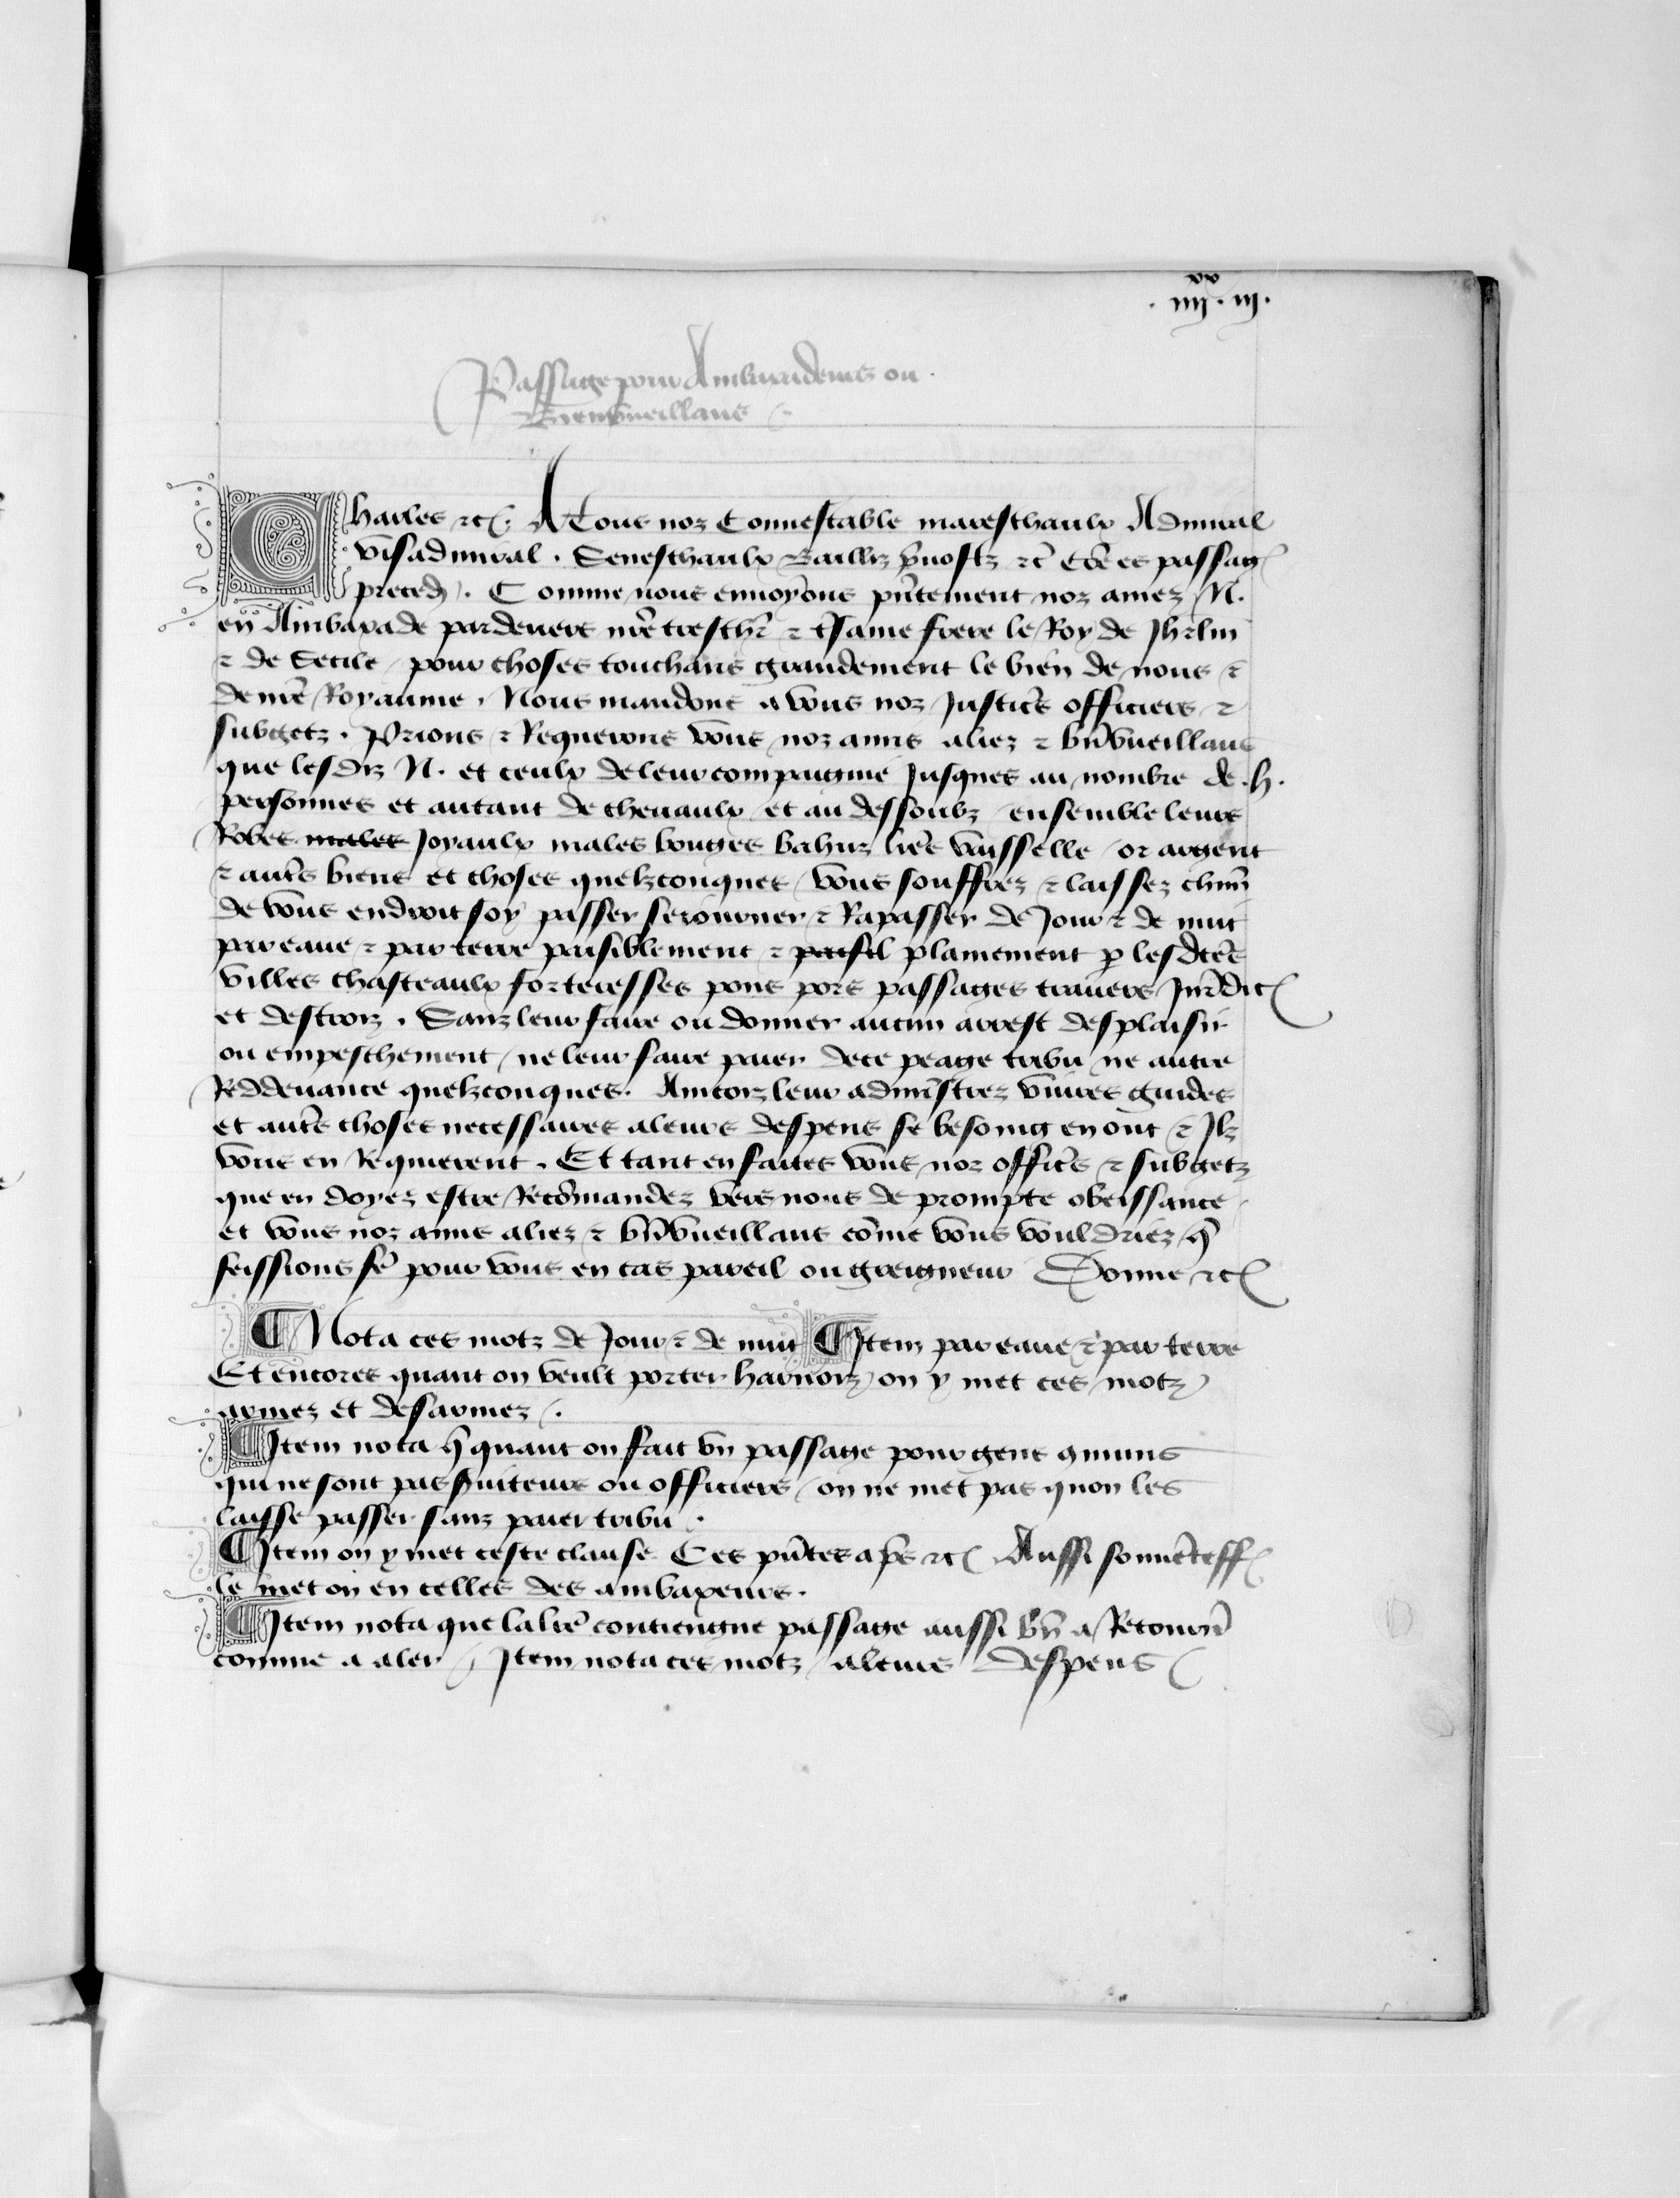 xx
. iiii . iij .
Passage pour Ambaxadeurs ou
Bienvueillans
Charles etc. A Tous noz Connestable mareschaulx Admiral
visadmiral . Seneschaulx Bailliz p̃uostz etc̃ es passag̃
preced̃ . Comme nous enuoyons pñtement noz amez N.
en Ambaxade pardeuers nr̃e treschr̃ ⁊ tsame frere le Roy de Jhrlm
⁊ de Secile pour choses touchans grandement le bien de nous ⁊
de nr̃e Royaume . Nous mandons a vous noz Justicrs̃ officiers ⁊
subgetz . Prions ⁊ Requerons vous noz amis aliez ⁊ bñvueillans
que lesdiz N. et ceulx de leur compaignie Jusques au nombre de .h.
personnes et autant de cheuaulx et au dessoubz ensemble leurs
Robes males Joyaulx males bouges bahuz lrẽs vaisselle or argent
⁊ autr̃s biens et choses quelzconques vous souffrez ⁊ laissez chun̄
de vous endroit soy passer seiourner ⁊ Rapasser de Jour ⁊ de nuit
par eaue ⁊ par terre paisiblement ⁊ plainement ꝑ lesdctẽs
villes chasteaulx forteresses pons pors passages trauers Jurid̃ic̃
et destroiz . Sanz leur faire ou donner aucun arrest desplaisir
ou empeschement ne leur faire paier dece peage tribu ne autre
Reddeuance quelzconques . Aincoiz leur administrez viures guides
et autr̃s choses necessaires a leurs despens se besoing en ont ⁊ Jlz
vous en Requierent . Et tant en faites vous noz officr̃s ⁊ subgetz
que en doyez estre Recom̃mandez vers nous de prompte obeissance
et vous noz amis aliez ⁊ bñvueillans com̃e vous vouldriez q̃
feissions fẽ pour vous en cas pareil ou greigneur Donne etc
¶ Nota ces motz de Jour ⁊ de nuit ¶ Item par eaue ⁊ par terre
Et encores quant on veult porter harnoiz on y met ces motz
armez et desarmez .
¶ Item nota q̃ quant on fait vn passage pour gens ꝯmuns
qui ne sont pas s̃uiteurs ou officiers on ne met pas quon les
laisse passer sanz paier tribu .
¶ Item on y met ceste clause Ces pñtes ap̃s etc Aussi souuẽteff̃
le met on en celles des ambaxeurs .
¶ Item nota que la lrẽ contiengne passage aussi bñ a Retourñ
comme a aler / Item nota ces motz / a leurs despens